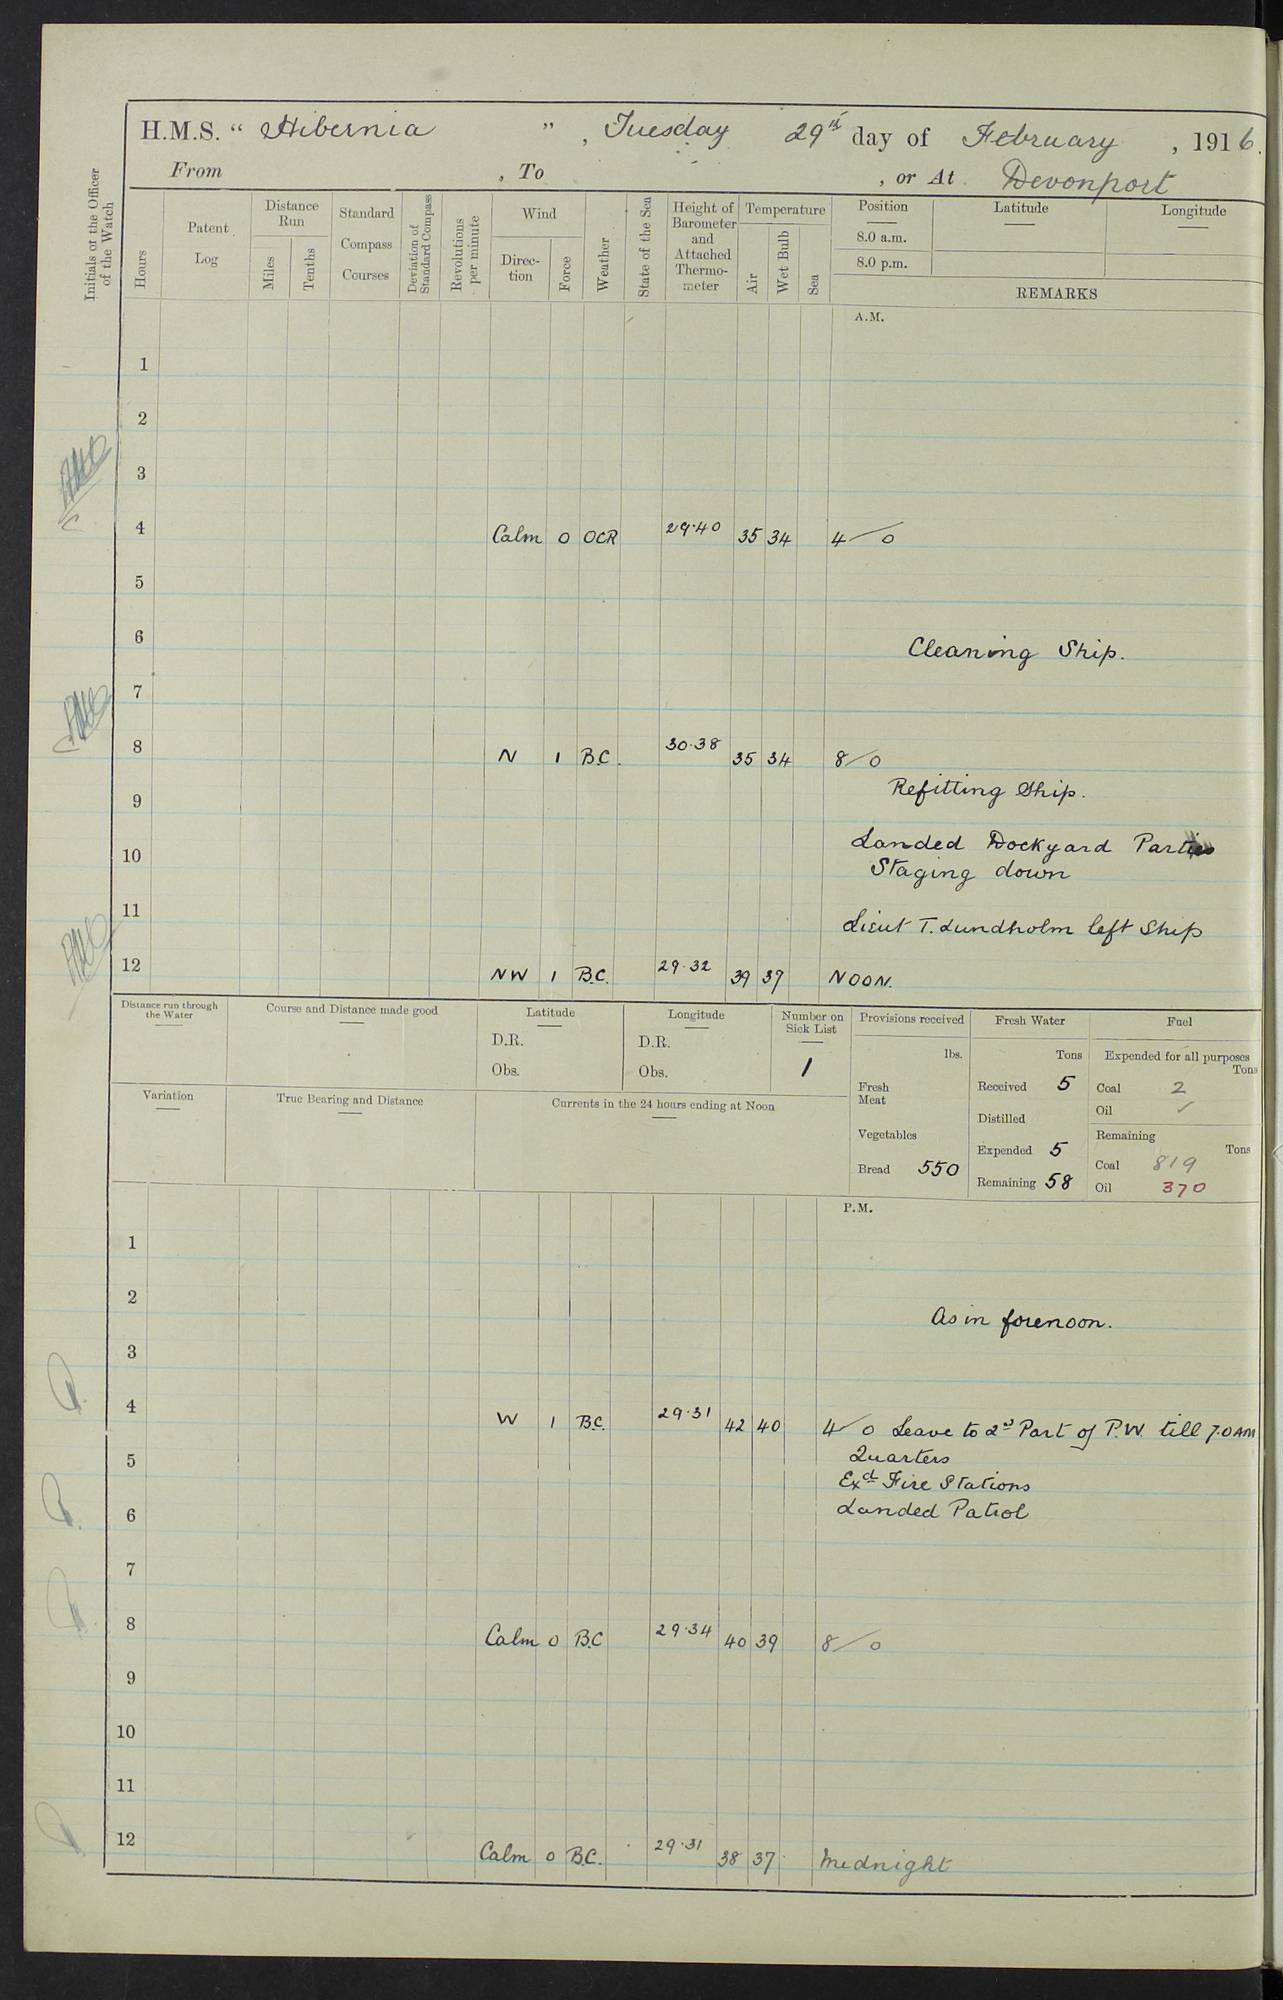 H.M.S. “ Hibernia ” , Tuesday 29th day of February , 1916.
From , To , or At Devonport
Initials of the Officer of the Watch
Hours
Patent Log
Distance Run
Miles
Tenths
Standard Compass Courses
Deviation of Standard Compass
Revolutions per minute
Wind
Direc-tion
Force
Weather
State of the Sea
Height of Barometer and Attached Thermo-meter
Temperature
Air
Wet Bulb
Sea
Position
8.0 a.m.
8.0 p.m.
Latitude
Longitude
REMARKS
A.M.
1
2
3
4 Calm 0 OCR 29.40 35 34 4/0
5
6 Cleaning Ship.
7
8 N 1 B.C. 30.38 35 34 8/0
9 Refitting Ship.
10 Landed Dockyard Parties
Staging down
11 Lieut T. Lundholm left Ship
12 NW 1 B.C. 29.32 39 37 NOON.
Distance run through the Water
Course and Distance made good
Latitude
D.R.
Obs.
Longitude
D.R.
Obs.
Number on Sick List
1
Provisions received
lbs.
Fresh Meat
Vegetables
Bread 550
Fresh Water
Tons
Received 5
Distilled
Expended 5
Remaining 58
Fuel
Expended for all purposes
Tons
Coal 2
Oil ✓
Remaining
Tons
Coal 819
Oil 370
Variation
True Bearing and Distance
Currents in the 24 hours ending at Noon
P.M.
1
2 As in forenoon.
3
4 W 1 B.C. 29.31 42 40 4/0 Leave to 2nd Part of P.W. till 7.0 AM
5 Quarters
Exd Fire Stations
6 Landed Patrol
7
8 Calm 0 B.C 29.34 40 39 8/0
9
10
11
12 Calm 0 B.C. 29.31 38 37 Midnight